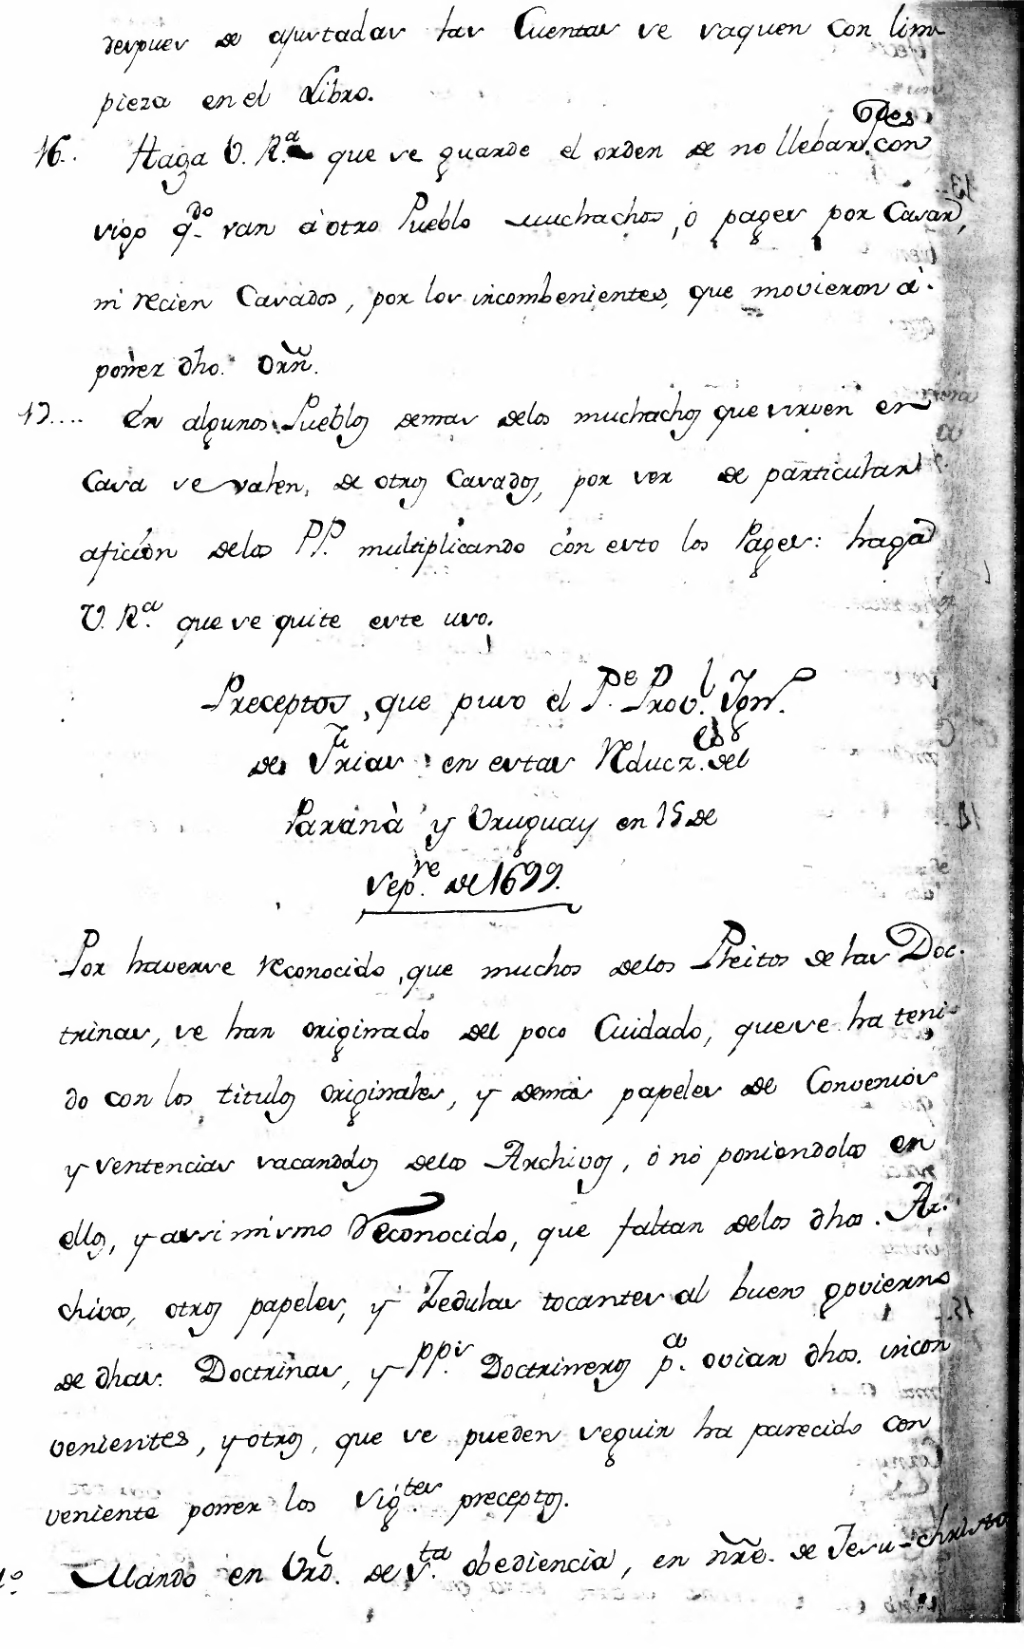 despues de ajustadas las Cuentas se saquen con lim
pieza en el Libro.
16.. Haga V. R.ª que se guarde el orden de no llebar Pes. con
sigo q.do van à otro Pueblo muchachos, ò pages por Casar,
ni recien Casados, por los incombenientes, que movieron à
poner dho. Orñ.
17.... En algunos Pueblos demas delos muchachos que sirven en
Casa se valen, de otros Casados, por ser de particular
aficion delos PP. multiplicando con esto los Pages: haga
V. R.ª que se quite este uso.
Preceptos, que puso el P.e Prov.l Ign.
de Frias en estas Reducz.es del
Paranà y Uruguay en 15 de
sep.re de 1699.
Por haverse reconocido, que muchos delos Pleitos de las Doc-
trinas, se han originado del poco Cuidado, que se ha teni-
do con los titulos originales, y demàs papeles de Convenios
y sentencias sacandolos delos Archivos, ò no poniendolos en
ellos, y assi mismo Reconocido, que faltan delos dhos. Ar-
chivos, otros papeles, y Zedulas tocantes al buen govierno
de dhas. Doctrinas, y pp.s Doctrineros p.a oviar dhos. incon
venientes, y otros, que se pueden seguir ha parecido con
veniente poner los sig.tes preceptos.
1º Mando en Vrd. de s.ta obediencia, en nre. de Jesu-christo